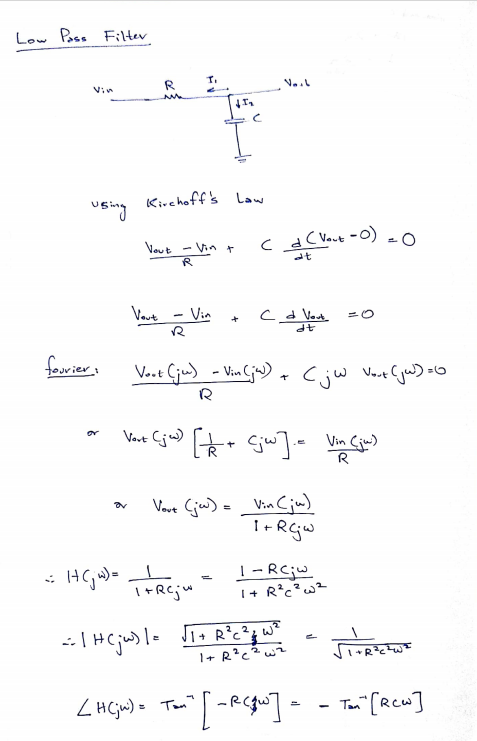 Low Pass Filter
Vin R I₁ Vout
I₂
C
Using Kirchoff's Law
(Vout - Vin)/R + C d(Vout - 0)/dt = 0
(Vout - Vin)/R + C d Vout/dt = 0
fourier: (Vout(jω) - Vin(jω))/R + Cjω Vout(jω) = 0
or Vout(jω) [1/R + Cjω] = Vin(jω)/R
or Vout(jω) = Vin(jω)/(1 + RCjω)
∴ H(jω) = 1/(1 + RCjω) = (1 - RCjω)/(1 + R²C²ω²)
∴ |H(jω)| = √(1 + R²C²ω²)/(1 + R²C²ω²) = 1/√(1 + R²C²ω²)
∠H(jω) = Tan⁻¹[-RCω] = - Tan⁻¹[RCω]